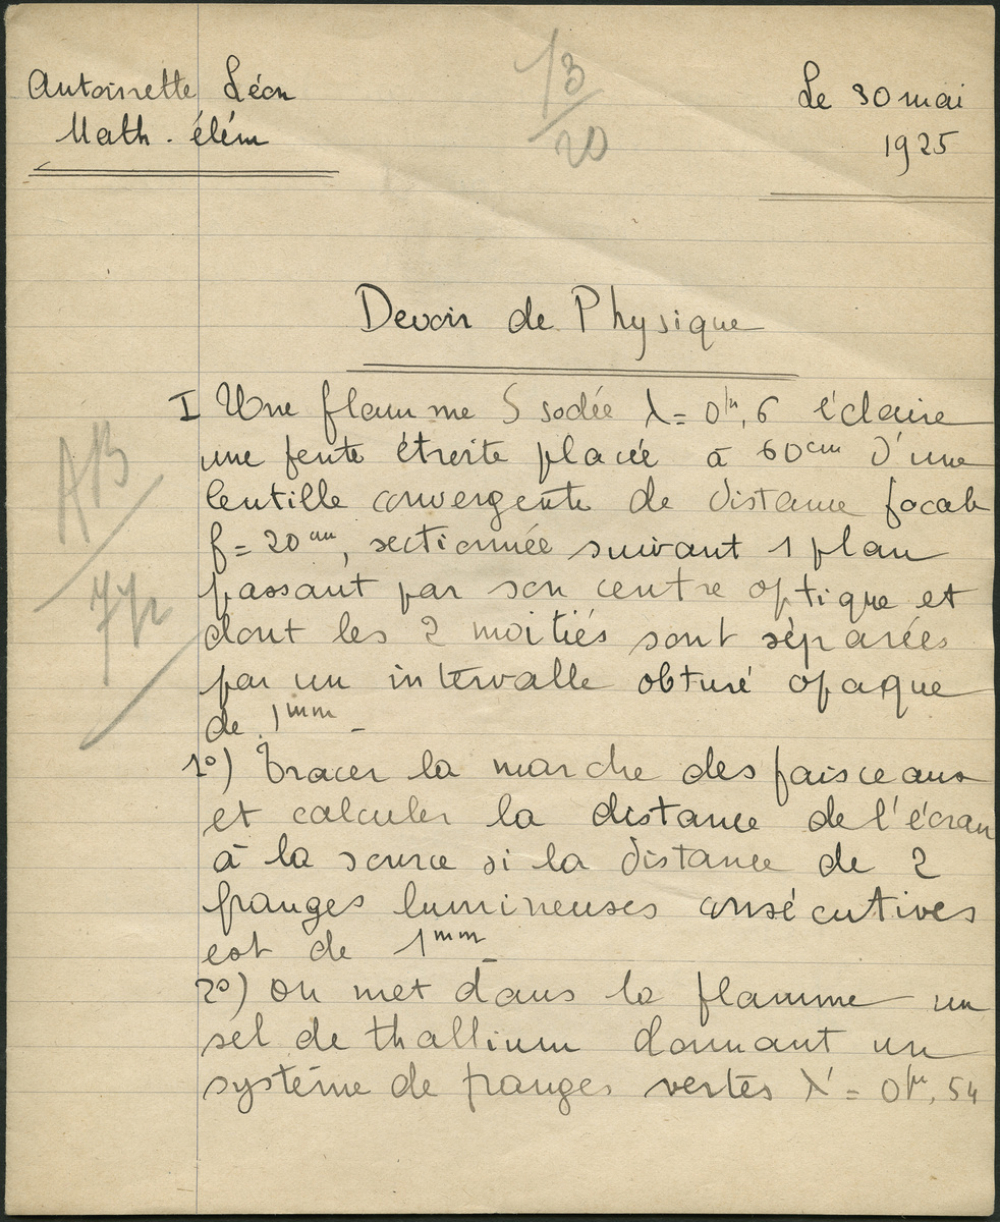 Antoinette Léon
Math. élém
13/20
Le 30 mai
1925
Devoir de Physique
I Une flamme S sodée λ = 0μ,6 éclaire
une fente étroite placée à 60cm d'une
lentille convergente de distance focale
f = 20cm, sectionnée suivant 1 plan
passant par son centre optique et
dont les 2 moitiés sont séparées
par un intervalle obturé opaque
de 1mm_
AB
1°) Tracer la marche des faisceaux
et calculer la distance de l'écran
à la source si la distance de 2
franges lumineuses consécutives
est de 1mm_
2°) On met dans la flamme un
sel de thallium donnant un
système de franges vertes λ' = 0μ,54